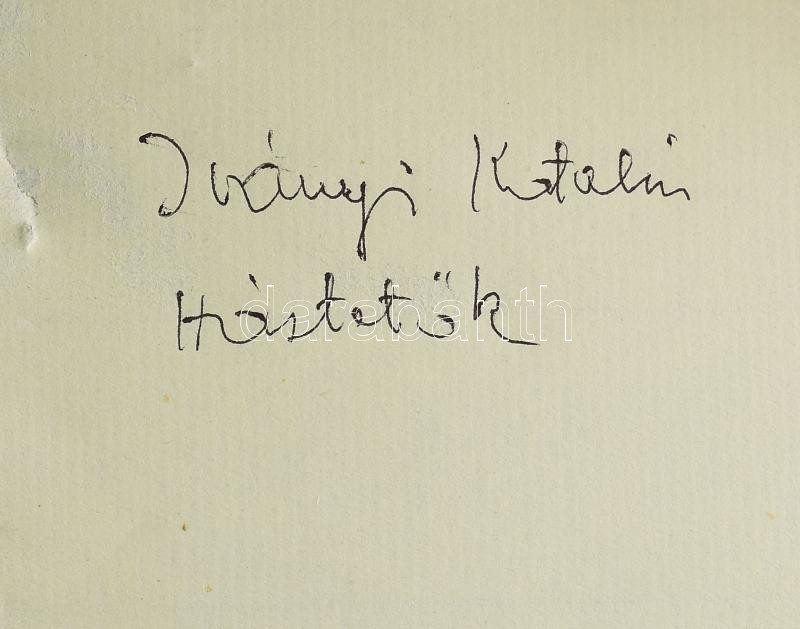 Iványi Katalin
Hástetők
darabanth